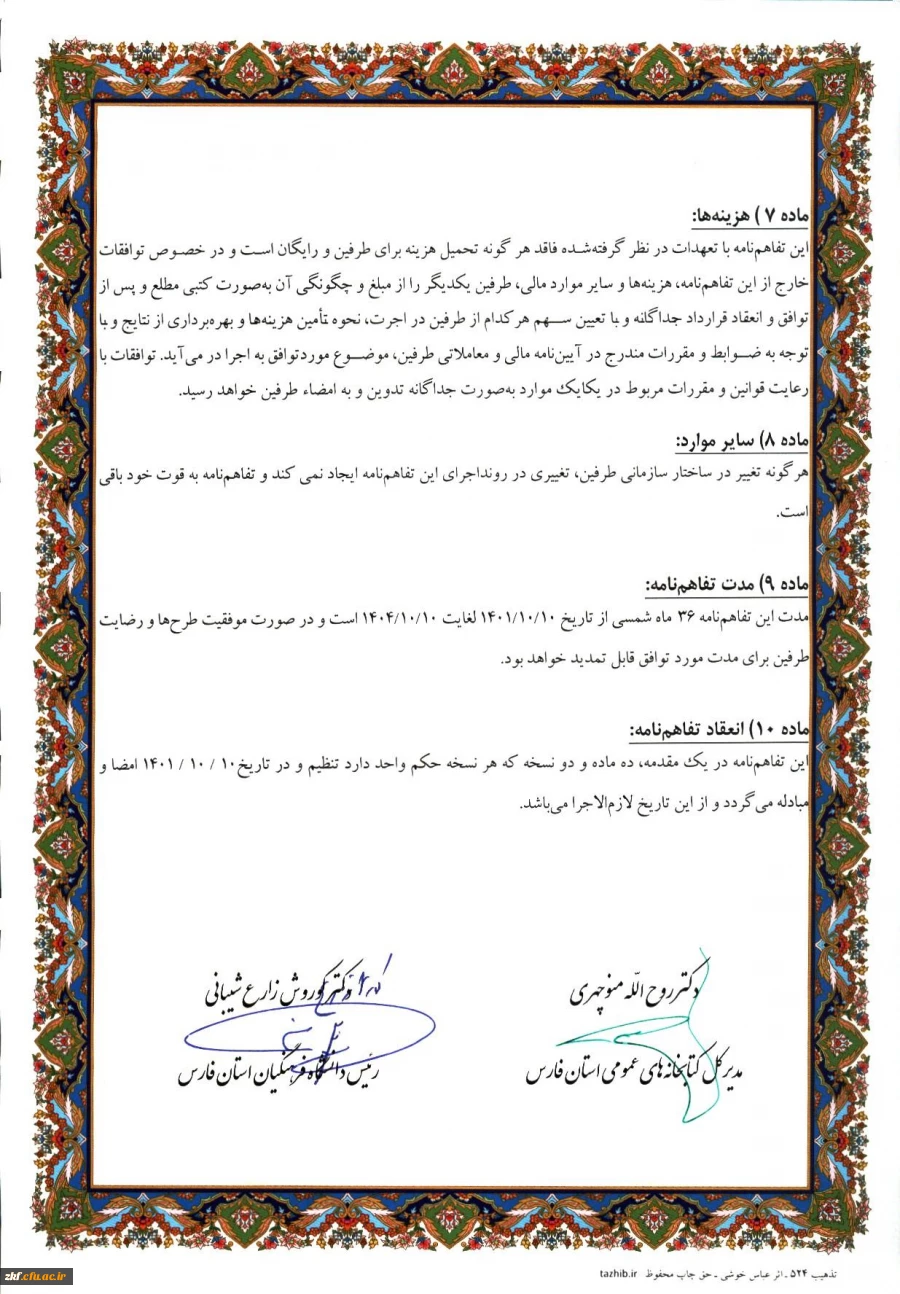 ماده ۷ ) هزینه‌ها:
این تفاهم‌نامه با تعهدات در نظر گرفته‌شده فاقد هر گونه تحمیل هزینه برای طرفین و رایگان است و در خصوص توافقات
خارج از این تفاهم‌نامه، هزینه‌ها و سایر موارد مالی، طرفین یکدیگر را از مبلغ و چگونگی آن به‌صورت کتبی مطلع و پس از
توافق و انعقاد قرارداد جداگانه و با تعیین سهم هر کدام از طرفین در اجرت، نحوه تأمین هزینه‌ها و بهره‌برداری از نتایج و با
توجه به ضوابط و مقررات مندرج در آیین‌نامه مالی و معاملاتی طرفین، موضوع موردتوافق به اجرا در می‌آید. توافقات با
رعایت قوانین و مقررات مربوط در یکایک موارد به‌صورت جداگانه تدوین و به امضاء طرفین خواهد رسید.
ماده ۸) سایر موارد:
هرگونه تغییر در ساختار سازمانی طرفین، تغییری در رونداجرای این تفاهم‌نامه ایجاد نمی کند و تفاهم‌نامه به قوت خود باقی
است.
ماده ۹) مدت تفاهم‌نامه:
مدت این تفاهم‌نامه ۳۶ ماه شمسی از تاریخ ۱۴۰۱/۱۰/۱۰ لغایت ۱۴۰۴/۱۰/۱۰ است و در صورت موفقیت طرح‌ها و رضایت
طرفین برای مدت مورد توافق قابل تمدید خواهد بود.
ماده ۱۰) انعقاد تفاهم‌نامه:
این تفاهم‌نامه در یک مقدمه، ده ماده و دو نسخه که هر نسخه حکم واحد دارد تنظیم و در تاریخ۱۰ / ۱۰ / ۱۴۰۱ امضا و
مبادله می‌گردد و از این تاریخ لازم‌الاجرا می‌باشد.
دکتر روح اللّه منوچهری
مدیر کل کتابخانه‌های عمومی استان فارس
دکتر کوروش زارع شیبانی
رئیس دانشگاه فرهنگیان استان فارس
تذهیب ۵۲۴ ـ اثر عباس خوشی ـ حق چاپ محفوظ tazhib.ir
zkf.cfu.ac.ir